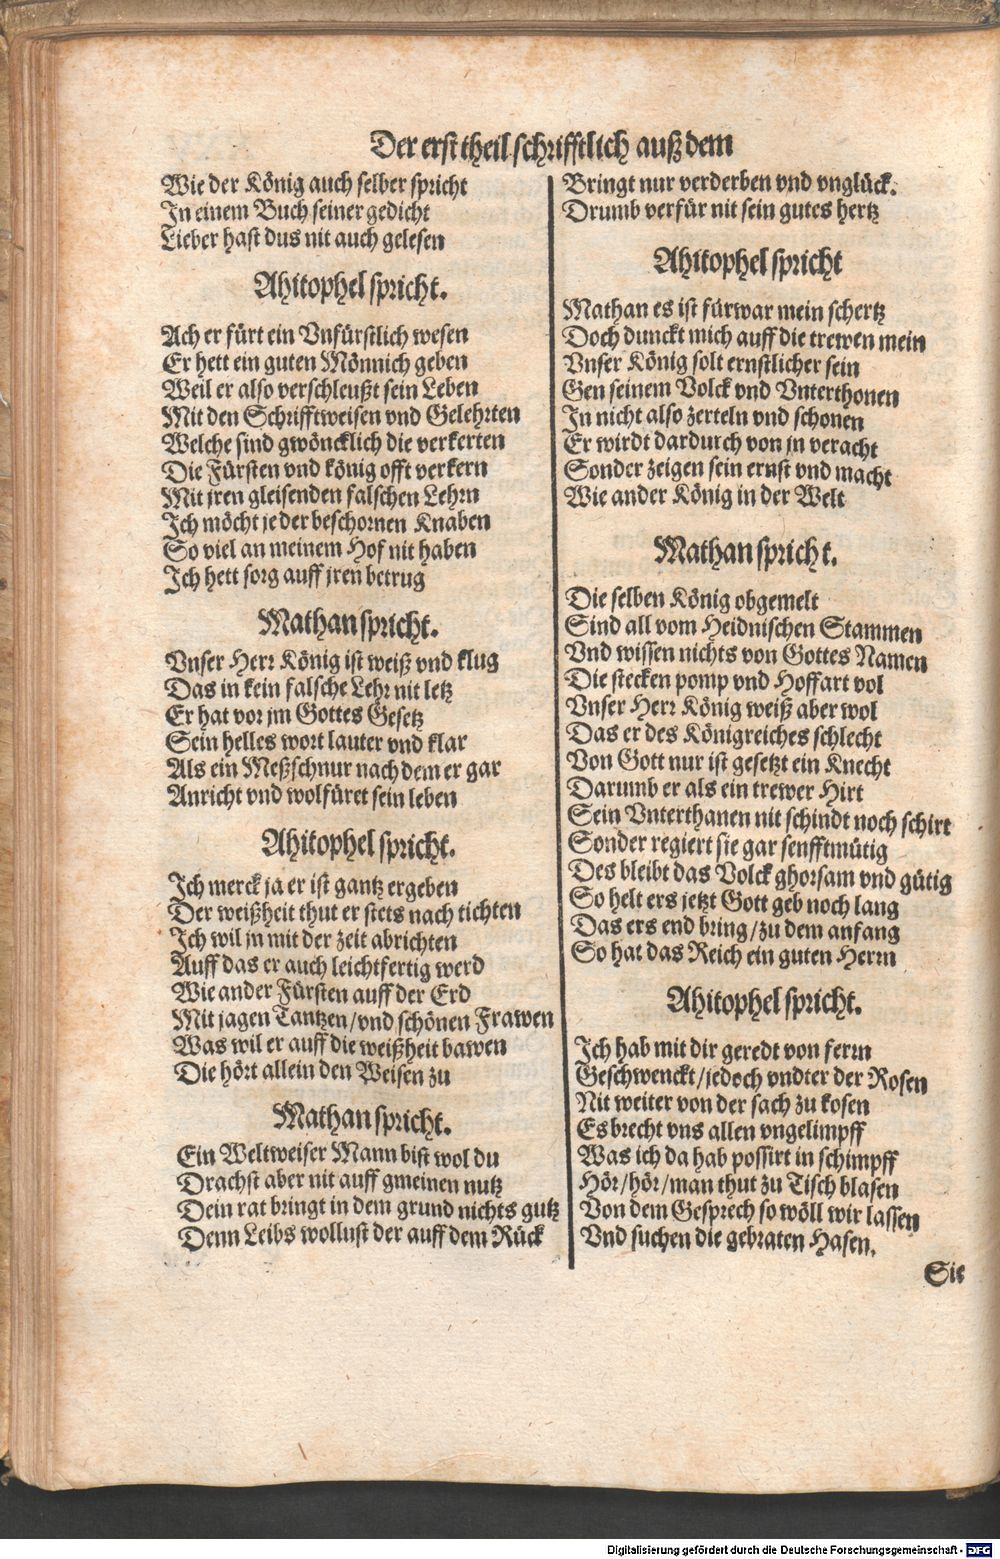 Der erst theil schrifftlich auß dem
Wie der König auch selber spricht
In einem Buch seiner gedicht
Lieber hast dus nit auch gelesen
Ahitophel spricht.
Ach er fürt ein Vnfürstlich wesen
Er hett ein guten Mönnich geben
Weil er also verschleußt sein Leben
Mit den Schrifftweisen vnd Gelehrten
Welche sind gwöncklich die verkerten
Die Fürsten vnd könig offt verkern
Mit jren gleisenden falschen Lehrn
Ich möcht je der beschornen Knaben
So viel an meinem Hof nit haben
Ich hett sorg auff jren betrug
Mathan spricht.
Vnser Herr König ist weiß vnd klug
Das in kein falsche Lehr nit letz
Er hat vor jm Gottes Gesetz
Sein helles wort lauter vnd klar
Als ein Meßschnur nach dem er gar
Anricht vnd wolfüret sein leben
Ahitophel spricht.
Ich merck ja er ist gantz ergeben
Der weißheit thut er stets nach tichten
Ich wil jn mit der zeit abrichten
Auff das er auch leichtfertig werd
Wie ander Fürsten auff der Erd
Mit jagen Tantzen/vnd schönen Frawen
Was wil er auff die weißheit bawen
Die hört allein den Weisen zu
Mathan spricht.
Ein Weltweiser Mann bist wol du
Drachst aber nit auff gmeinen nutz
Dein rat bringt in dem grund nichts gutz
Denn Leibs wollust der auff dem Rück
Bringt nur verderben vnd vnglück.
Drumb verfür nit sein gutes hertz
Ahitophel spricht
Mathan es ist fürwar mein schertz
Doch dunckt mich auff die trewen mein
Vnser König solt ernstlicher sein
Gen seinem Volck vnd Vnterthonen
In nicht also zerteln vnd schonen
Er wirdt dardurch von jn veracht
Sonder zeigen sein ernst vnd macht
Wie ander König in der Welt
Mathan spricht.
Die selben König obgemelt
Sind all vom Heidnischen Stammen
Vnd wissen nichts von Gottes Namen
Die stecken pomp vnd Hoffart vol
Vnser Herr König weiß aber wol
Das er des Königreiches schlecht
Von Gott nur ist gesetzt ein Knecht
Darumb er als ein trewer Hirt
Sein Vnterthanen nit schindt noch schirt
Sonder regiert sie gar senfftmütig
Des bleibt das Volck ghorsam vnd gütig
So helt ers jetzt Gott geb noch lang
Das ers end bring/zu dem anfang
So hat das Reich ein guten Herrn
Ahitophel spricht.
Ich hab mit dir geredt von ferrn
Geschwenckt/jedoch vndter der Rosen
Nit weiter von der sach zu kosen
Es brecht vns allen vngelimpff
Was ich da hab possirt in schimpff
Hör/hör/man thut zu Tisch blasen
Von dem Gesprech so wöll wir lassen
Vnd suchen die gebraten Hasen.
Sie
Digitalisierung gefördert durch die Deutsche Forschungsgemeinschaft - DFG